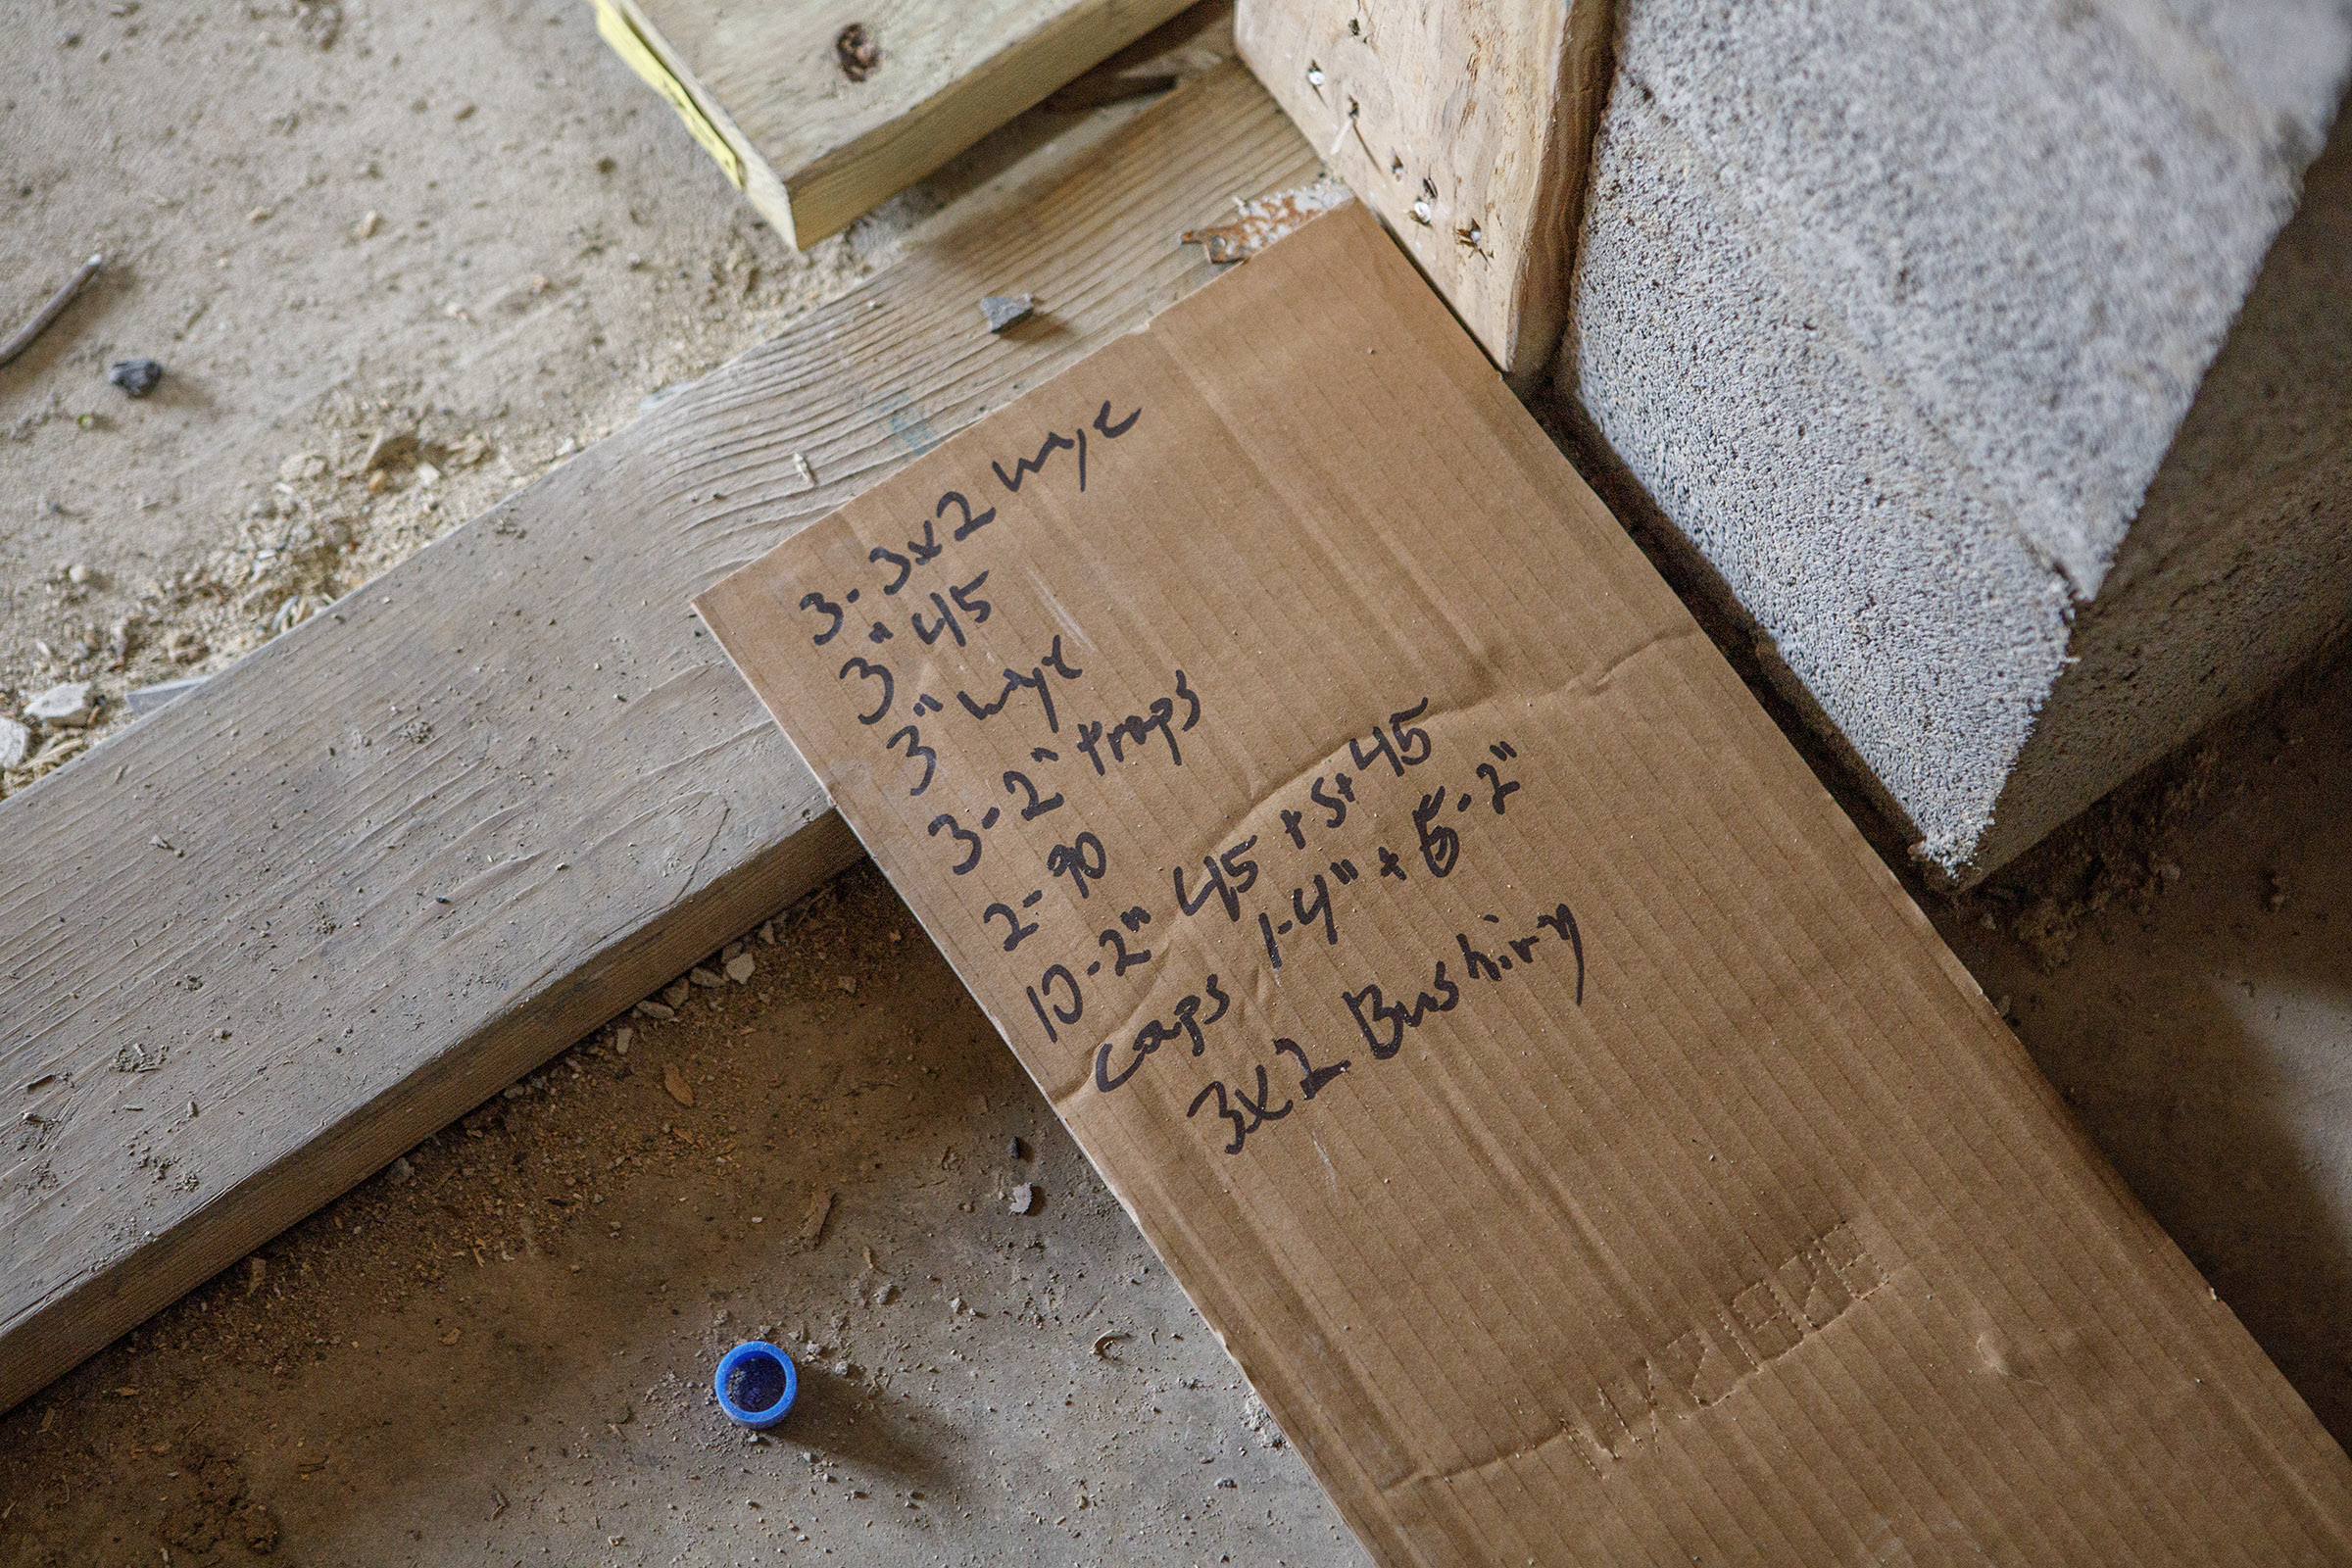 3- 3x2 wye
3" 45
3" wye
3-2" traps
2-90
10-2" 45 + st 45
caps 1-4" + 5-2"
3x2 Bushing